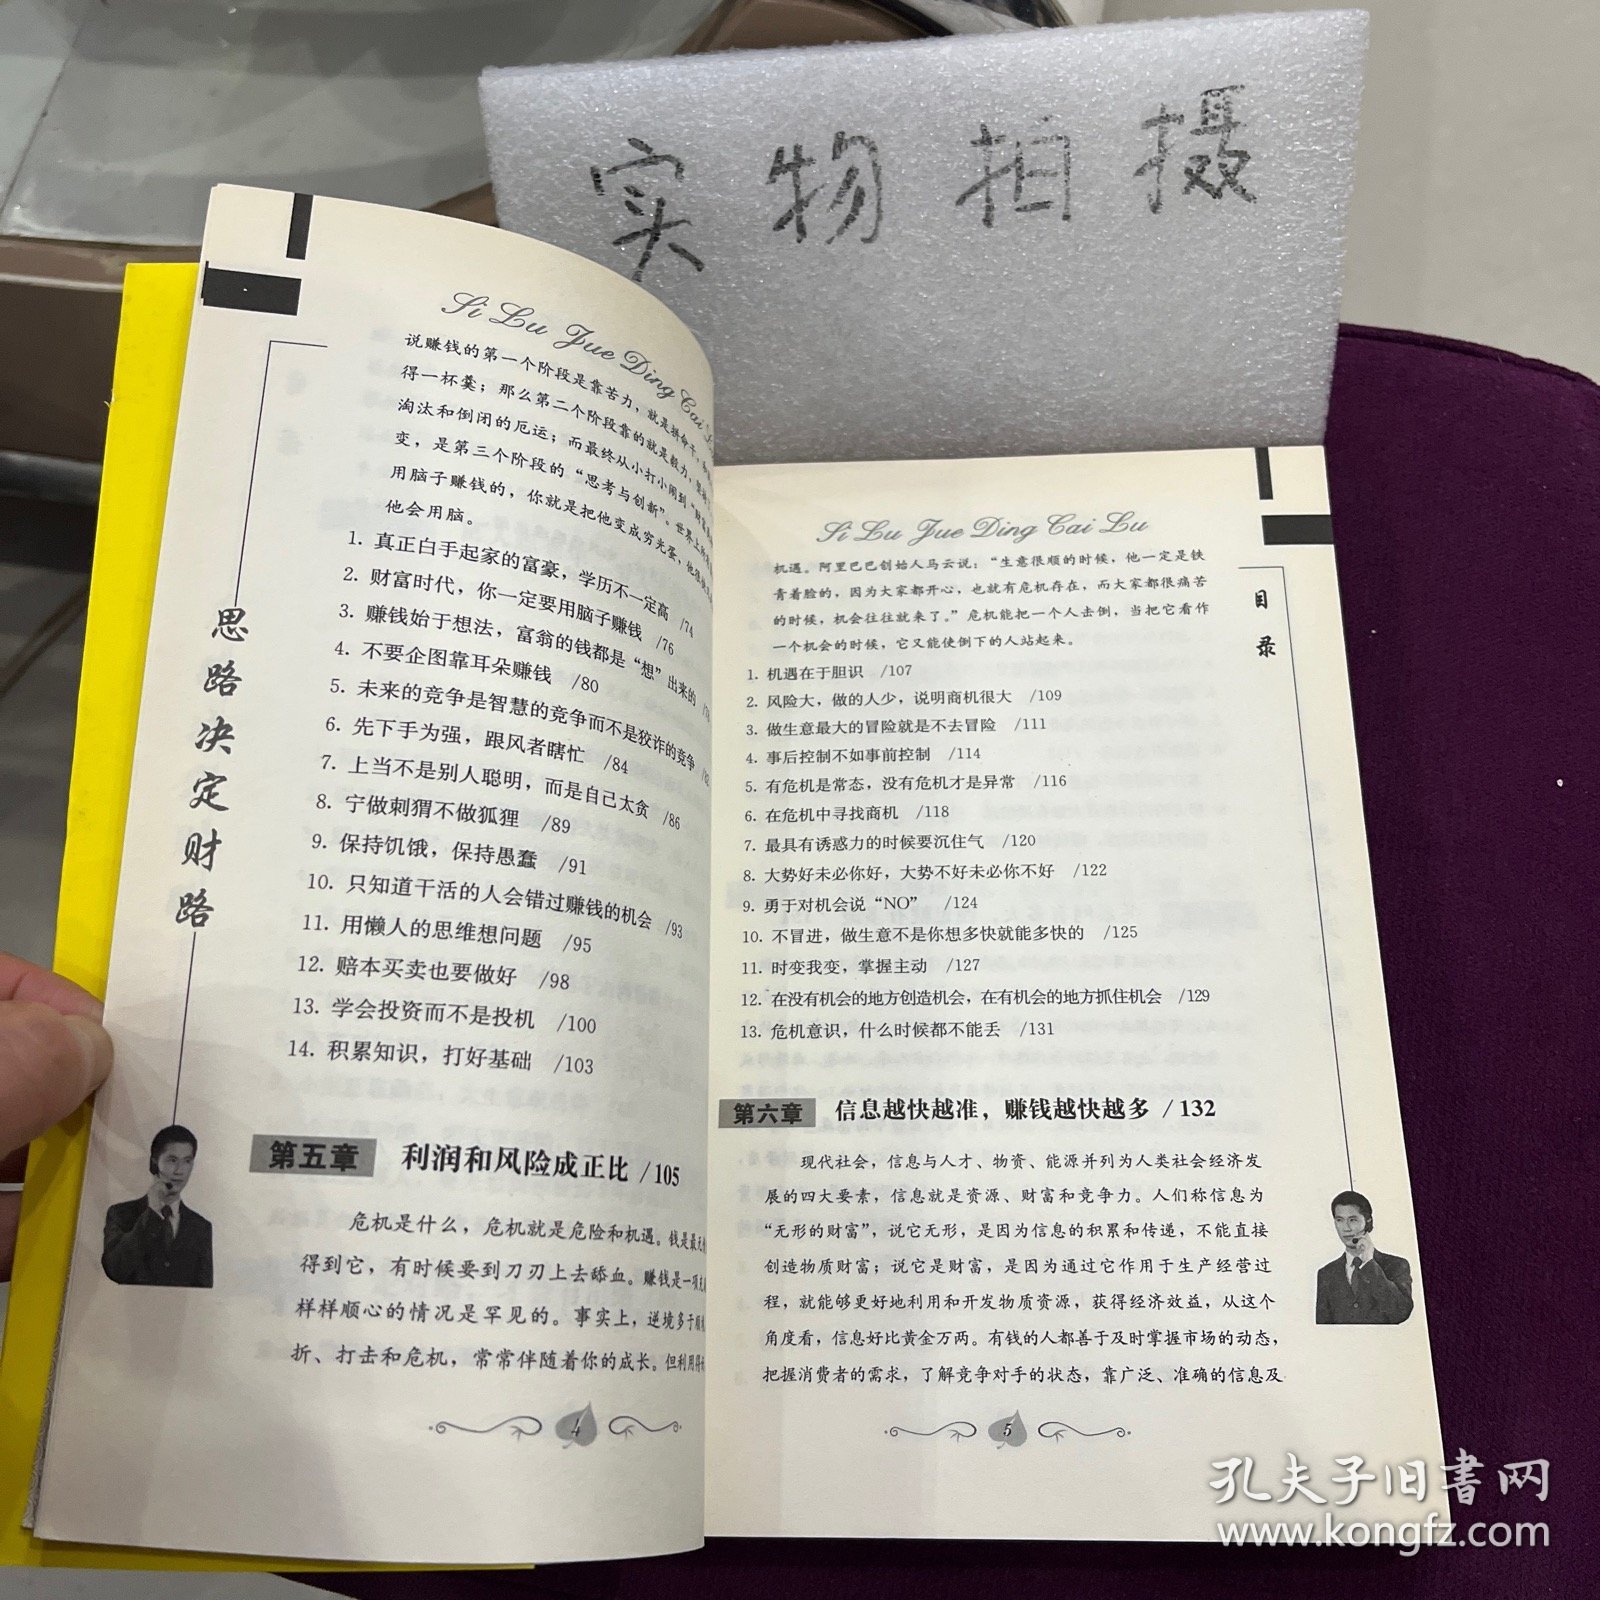 实物拍摄
Si Lu Jue Ding Cai
说赚钱的第一个阶段是靠苦力，就是拼命干，
得一杯羹；那么第二个阶段靠的就是毅力，
淘汰和倒闭的厄运；而最终从小打小闹到“财富
变，是第三个阶段的“思考与创新”。世界上所
用脑子赚钱的，你就是把他变成穷光蛋，他很快
他会用脑。
1. 真正白手起家的富豪，学历不一定高 /74
2. 财富时代，你一定要用脑子赚钱 /76
3. 赚钱始于想法，富翁的钱都是“想”出来的
4. 不要企图靠耳朵赚钱 /80
5. 未来的竞争是智慧的竞争而不是狡诈的竞争 /82
6. 先下手为强，跟风者瞎忙 /84
7. 上当不是别人聪明，而是自己太贪 /86
8. 宁做刺猬不做狐狸 /89
9. 保持饥饿，保持愚蠢 /91
10. 只知道干活的人会错过赚钱的机会 /93
11. 用懒人的思维想问题 /95
12. 赔本买卖也要做好 /98
13. 学会投资而不是投机 /100
14. 积累知识，打好基础 /103
思路决定财路
第五章 利润和风险成正比 /105
危机是什么，危机就是危险和机遇。钱是最
得到它，有时候要到刀刃上去舔血。赚钱是一项
样样顺心的情况是罕见的。事实上，逆境多于顺
折、打击和危机，常常伴随着你的成长。但利用得
4
Si Lu Jue Ding Cai Lu
机遇。阿里巴巴创始人马云说：“生意很顺的时候，他一定是铁
青着脸的，因为大家都开心，也就有危机存在，而大家都很痛苦
的时候，机会往往就来了。”危机能把一个人击倒，当把它看作
一个机会的时候，它又能使倒下的人站起来。
目录
1. 机遇在于胆识 /107
2. 风险大，做的人少，说明商机很大 /109
3. 做生意最大的冒险就是不去冒险 /111
4. 事后控制不如事前控制 /114
5. 有危机是常态，没有危机才是异常 /116
6. 在危机中寻找商机 /118
7. 最具有诱惑力的时候要沉住气 /120
8. 大势好未必你好，大势不好未必你不好 /122
9. 勇于对机会说“NO” /124
10. 不冒进，做生意不是你想多快就能多快的 /125
11. 时变我变，掌握主动 /127
12. 在没有机会的地方创造机会，在有机会的地方抓住机会 /129
13. 危机意识，什么时候都不能丢 /131
第六章 信息越快越准，赚钱越快越多 /132
现代社会，信息与人才、物资、能源并列为人类社会经济发
展的四大要素，信息就是资源、财富和竞争力。人们称信息为
“无形的财富”，说它无形，是因为信息的积累和传递，不能直接
创造物质财富；说它是财富，是因为通过它作用于生产经营过
程，就能够更好地利用和开发物质资源，获得经济效益，从这个
角度看，信息好比黄金万两。有钱的人都善于及时掌握市场的动态，
把握消费者的需求，了解竞争对手的状态，靠广泛、准确的信息及
5
孔夫子旧书网
www.kongfz.com